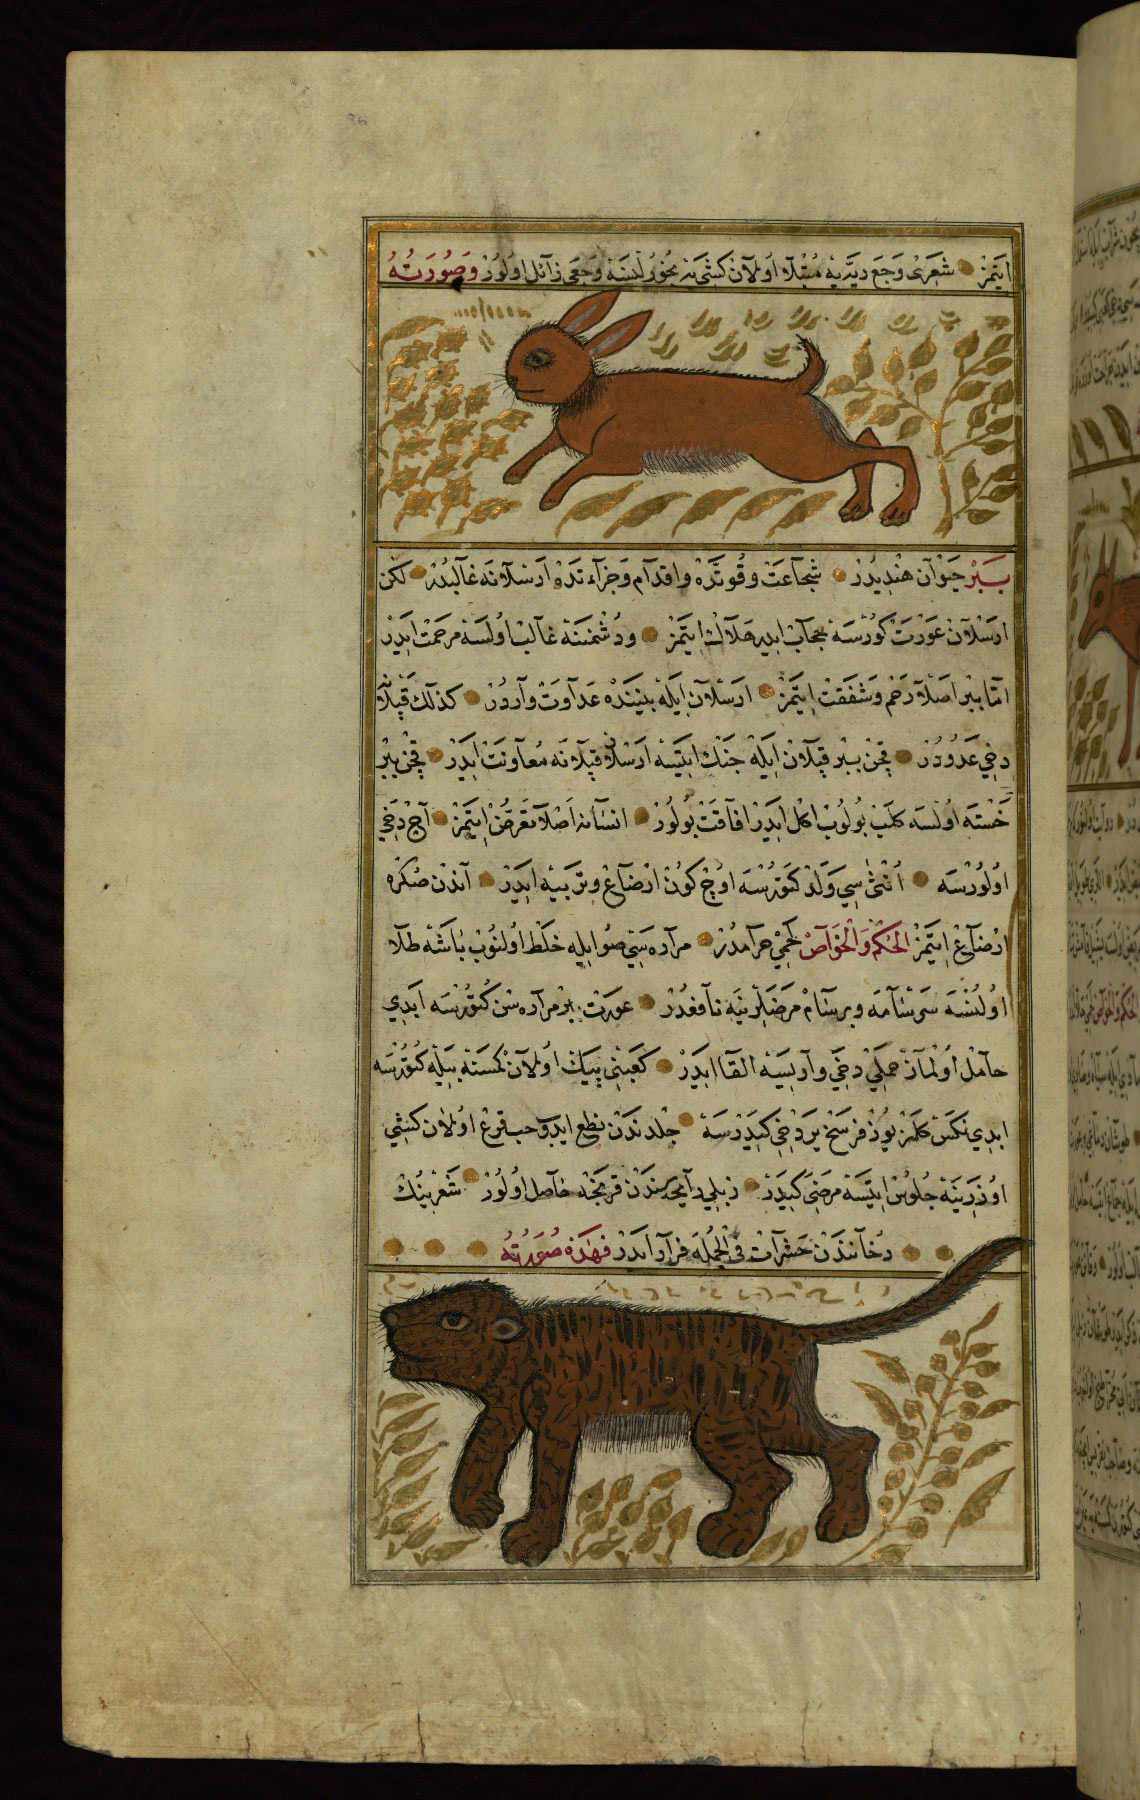 ایتمز شعری وجع ریه یه مبتلا اولان کشی یه بخور اولنسه وجعی زائل اولور وصورته
ببر حیوان هندیدر شجاعت وقوتده واقدام وجرأتده ارسلانه غالبدر لکن
ارسلان عورت کورسه حجاب ایدر هلاك ایتمز ودشمننه غالب اولسه مرحمت ایدر
اما ببر اصلا رحم وشفقت ایتمز ارسلان ایله بیننده عداوت واردر کذلك قپلان
دخی عدودر قچن ببر قپلان ایله جنك ایتسه ارسلان قپلانه معاونت ایدر قچن ببر
خسته اولسه کلب بولوب اکل ایدر افاقت بولور انسانه اصلا تعرض ایتمز آج دخی
اولورسه انثی سی ولد کتورسه اوچ کون ارضاع وتربیه ایدر آندن صکره
ارضاع ایتمز الحکم والخواص لحمی حرامدر مراره سنی صو ایله خلط اولنوب باشه طلا
اولنسه سرسامه وبرسام مرضلرینه نافعدر عورت ببر مراره سن کتورسه ابدی
حامل اولماز حملی دخی وار ایسه القا ایدر کعبنی پیك اولان کمسنه بیله کتورسه
ابدی نکس کلمز یوز فرسخ یر دخی کیدرسه جلدندن نطع ایدوب حب قرع اولان کشی
اوزرینه جلوس ایتسه مرضی کیدر زبلی رایحه سندن قریحه حاصل اولور شعرینك
دخانندن حشرات فی الجمله فرار ایدر فهذه صورته